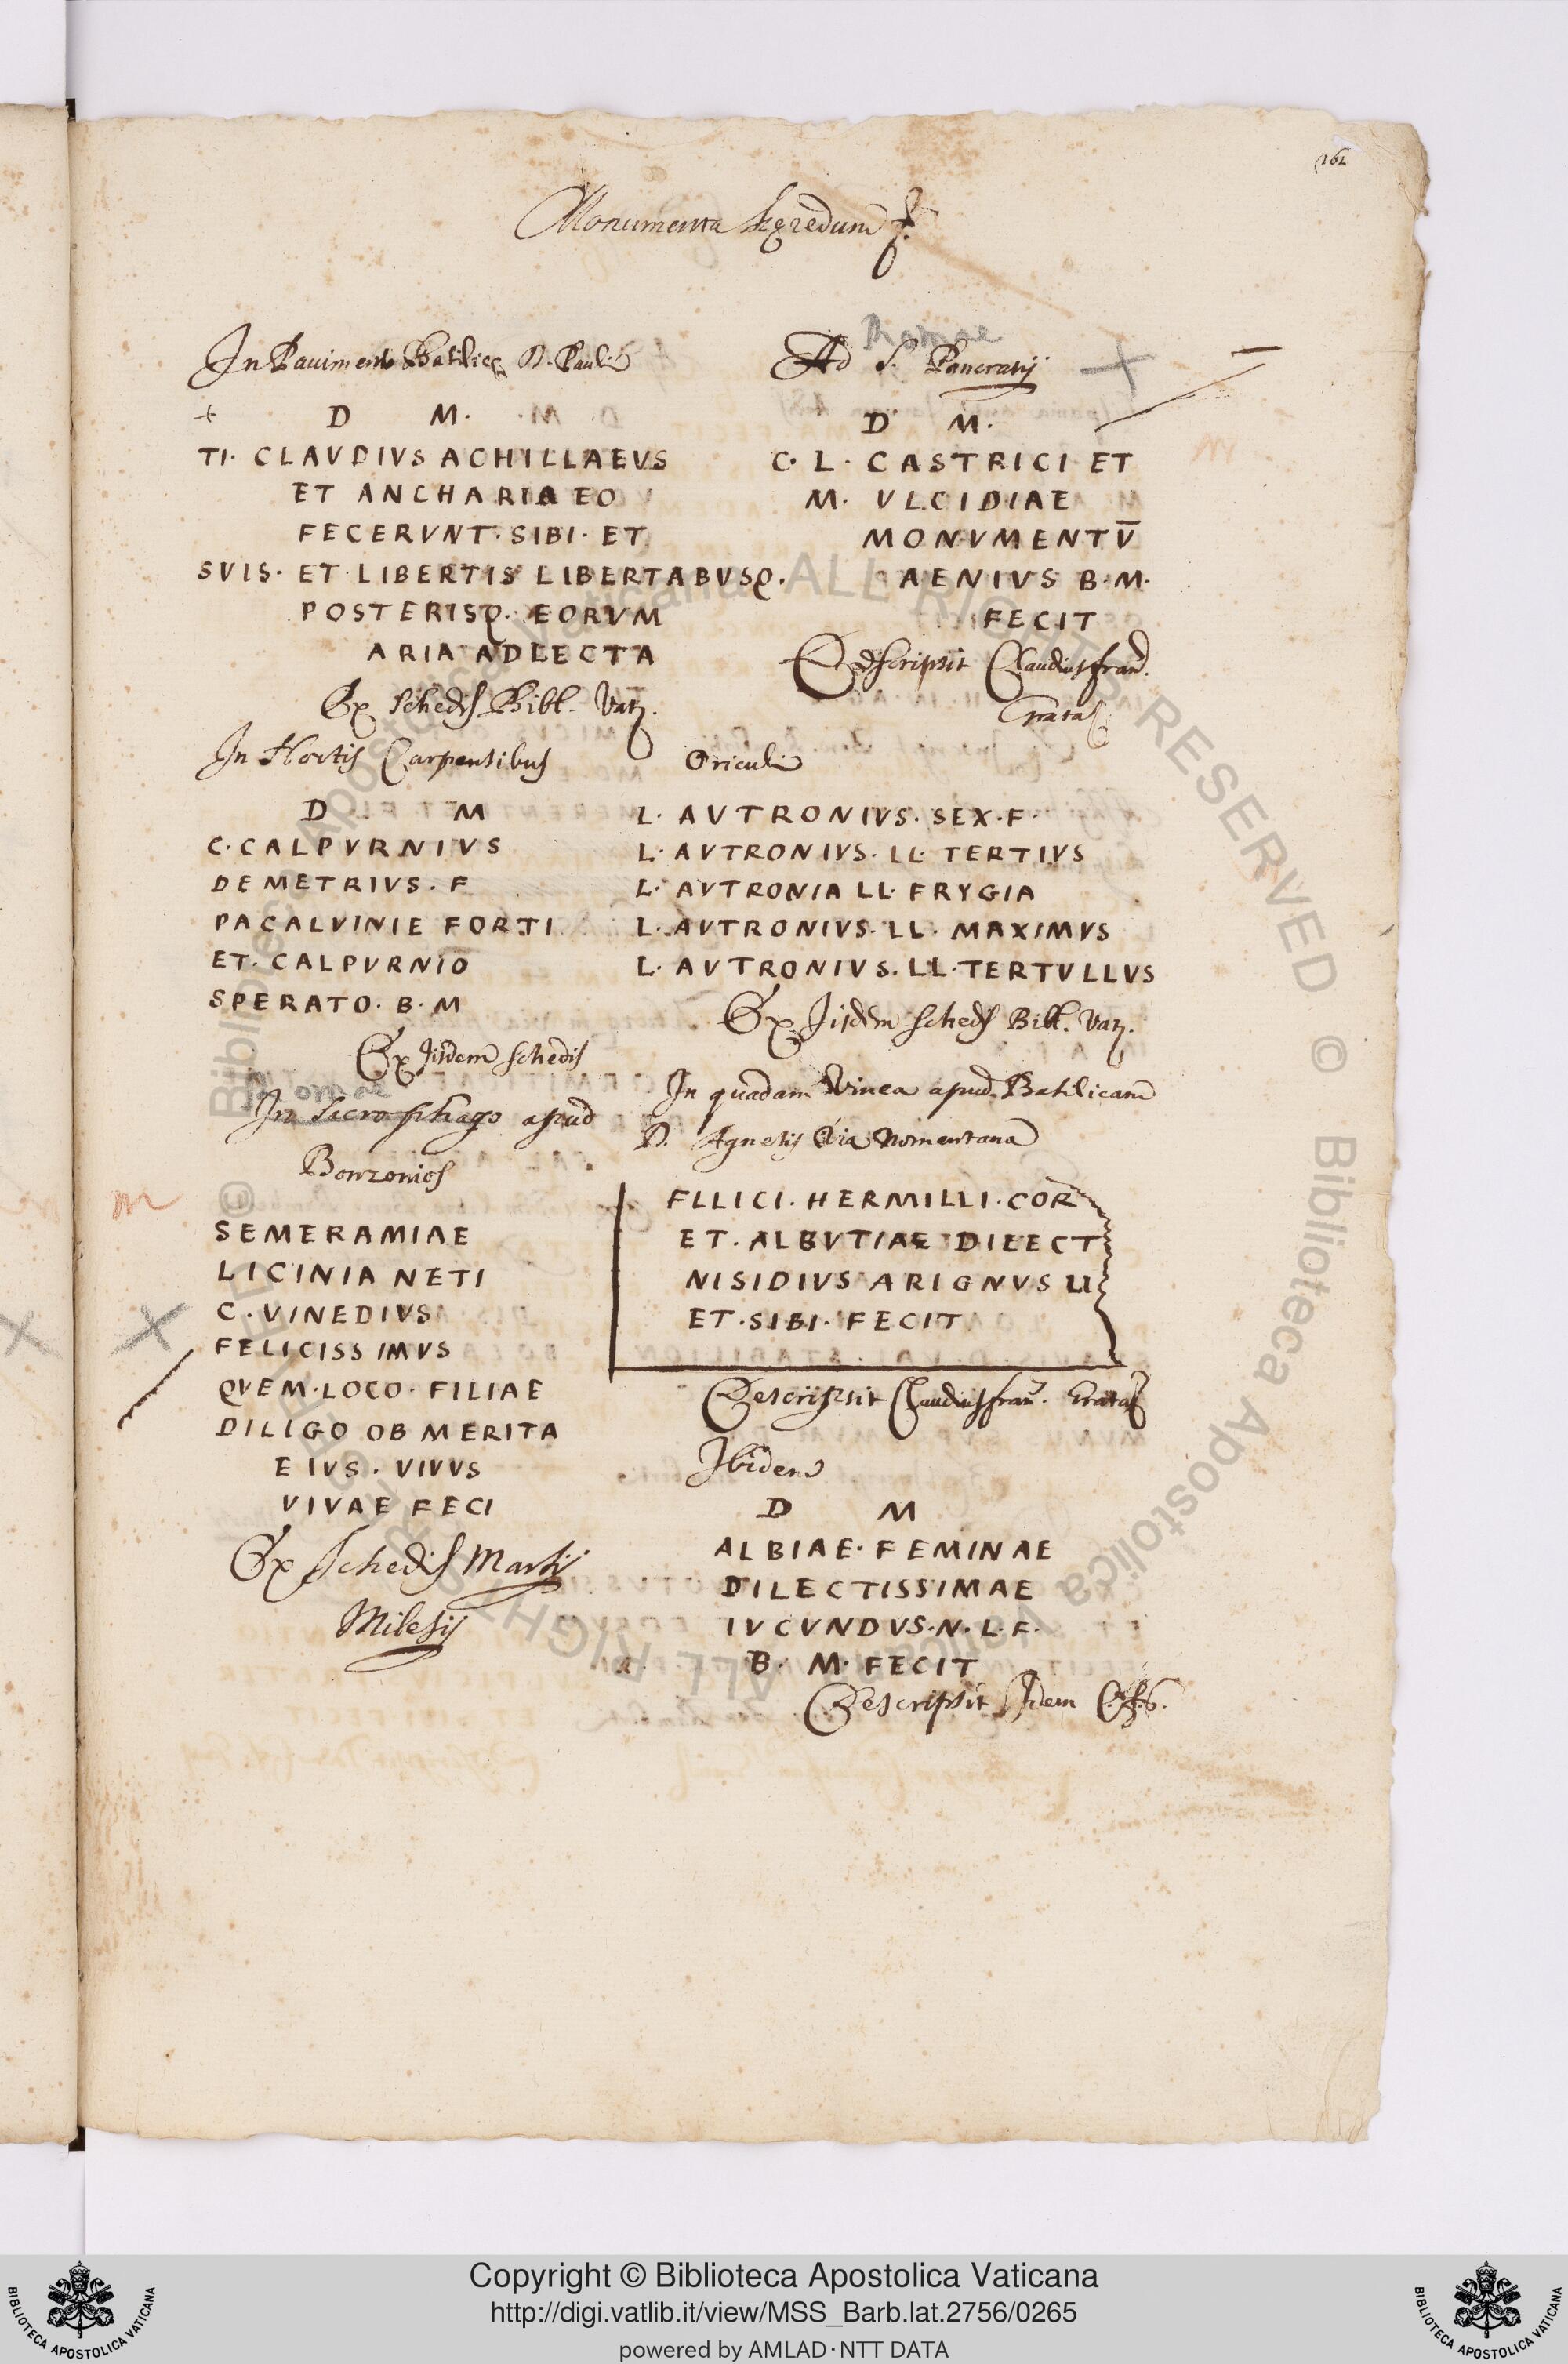 162
Monumenta hęredum
In Pauimento Basilicę D. Pauli
+ D M.
TI. CLAVDIVS ACHILLAEVS
ET ANCHARIA EO
FECERVNT. SIBI. ET
SVIS. ET LIBERTIS LIBERTABVSQ.
POSTERISQ. EORVM
ARIA ADLECTA
Ex schedis Bibl. Vat.
In Hortis Carpensibus
D M
C. CALPVRNIVS
DEMETRIVS. F
PACALVINIE FORTI
ET. CALPVRNIO
SPERATO. B. M
Ex Iisdem schedis
Romae
In Sacrophago apud
Bonzonios
m
SEMERAMIAE
LICINIA NETI
C. VINEDIVS
FELICISSIMVS
QVEM. LOCO. FILIAE
DILIGO OB MERITA
EIVS. VIVVS
VIVAE FECI
Ex Schedis Martij
Milesij
Romae
Ad S. Pancratij
D M.
C. L. CASTRICI ET
M. VLCIDIAE
MONVMENTV̅
AENIVS B. M.
FECIT
Descripsit Claudius fran.
Gratas
Oriculi
L. AVTRONIVS. SEX. F.
L. AVTRONIVS. LL. TERTIVS
L. AVTRONIA LL. FRYGIA
L. AVTRONIVS. LL. MAXIMVS
L. AVTRONIVS. LL. TERTVLLVS
Ex Iisdem sched Bibl. Vat.
In quadam Vinea apud Basilicam
D. Agnetis Via Nomentana
FLLICI. HERMILLI. COR
ET. ALBVTIAE DILECT
NISIDIVS ARIGNVS LI
ET. SIBI. FECIT
Descripsit Claudius fran. Gratas
Ibidem
D M
ALBIAE. FEMINAE
DILECTISSIMAE
IVCVNDVS. N. L. F.
B. M. FECIT
Descripsit Idem C. f. G.
Copyright © Biblioteca Apostolica Vaticana
http://digi.vatlib.it/view/MSS_Barb.lat.2756/0265
powered by AMLAD·NTT DATA
BIBLIOTECA APOSTOLICA VATICANA
BIBLIOTECA APOSTOLICA VATICANA